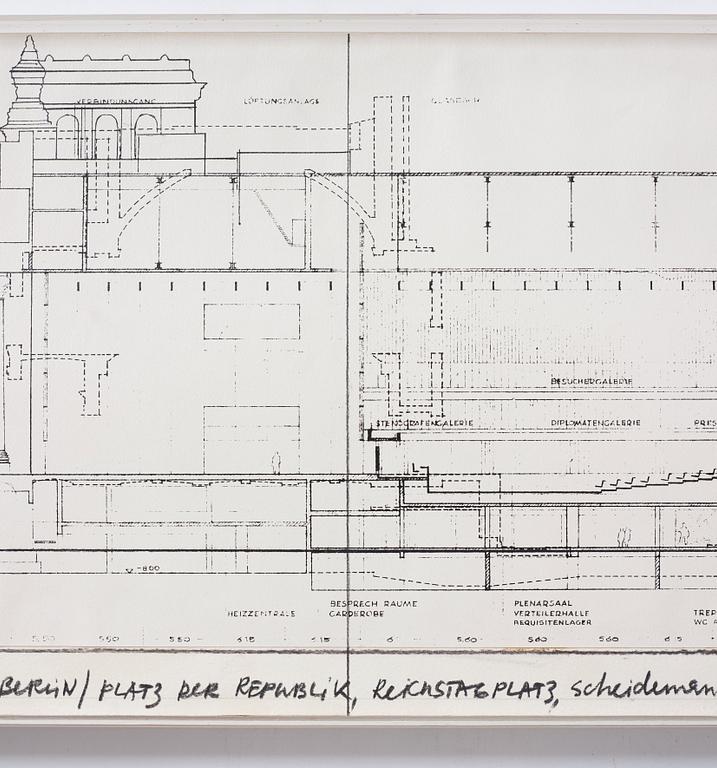 VERBINDUNGSGANG LÜFTUNGSANLAGE
BESUCHERGALERIE
STENOGRAFENGALERIE DIPLOMATENGALERIE PRES
-800
HEIZZENTRALE
BESPRECH RÄUME
GARDEROBE
PLENARSAAL
VERTEILERHALLE
REQUISITENLAGER
TREP
WC
550 550 550 615 615 6 560 560 560 615
BERLIN/ PLATZ DER REPUBLIK, REICHSTAGPLATZ, Scheideman